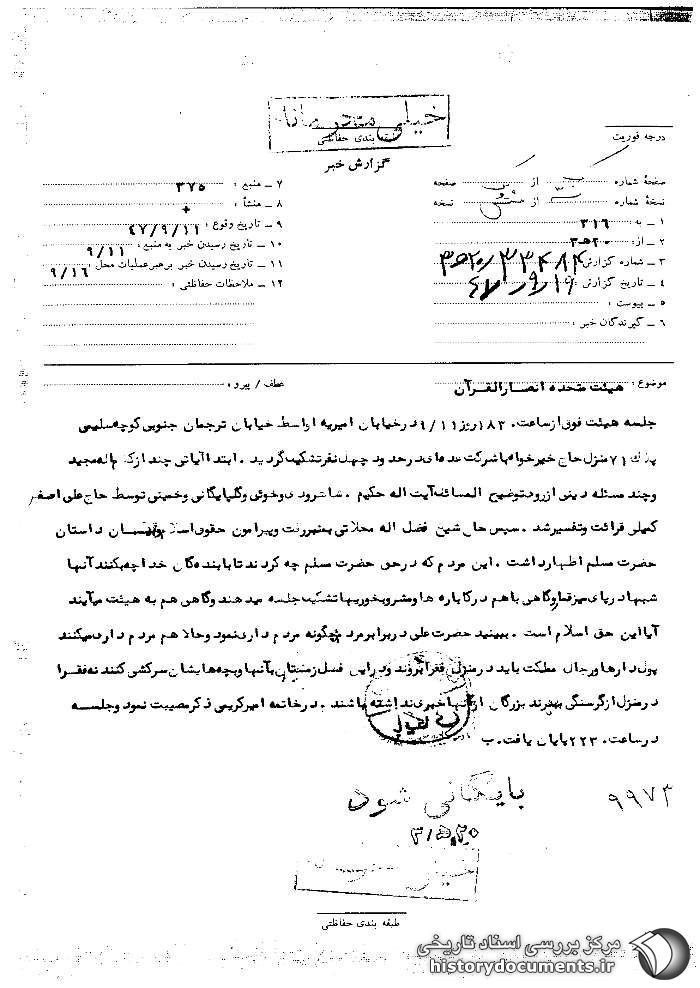 خیلی محرمانه
طبقه بندی حفاظتی
درجه فوریت
گزارش خبر
صفحهٔ شماره از صفحه
نسخهٔ شماره از نسخه
۱ – به ۳۱۶
۲ – از: ۲۰ ﻫ ۳
۳ – شماره گزارش ۳۳۴۸۴ / ۲۰ ﻫ ۳
۴ – تاریخ گزارش: ۴۷/۹/۱۹
۵ – پیوست :
۶ – گیرندگان خبر :
۷ – منبع : ۳۷۵
۸ – منشأ : +
۹ – تاریخ وقوع : ۴۷/۹/۱۱
۱۰ – تاریخ رسیدن خبر به منبع : ۹/۱۱
۱۱ – تاریخ رسیدن خبر برهبر عملیات محل ۹/۱۶
۱۲ – ملاحظات حفاظتی :
موضوع: هیئت متحده انصارالقرآن
عطف / پیرو :
جلسه هیئت فوق از ساعت ۱۸۳۰ روز ۹/۱۱ در خیابان امیریه اواسط خیابان ترجمان جنوبی کوچه سلیمی
پلاک ۷۱ منزل حاج خیرخواهها شرکت عده‌ای در حدود چهل نفر تشکیل گردید . ابتدا آیاتی چند از کلام اله مجید
و چند مسئله دینی از روی توضیح المسائل آیت اله حکیم . شاهرودی و خوئی و گلپایگانی و خمینی توسط حاج علی اصغر
کمیلی قرائت و تفسیر شد . سپس حال شیخ فضل اله محلاتی بمنبر رفت و پیرامون حقوق اسلام و داستان
حضرت مسلم اظهار داشت . این مردم که در حق حضرت مسلم چه کردند تا با بنده‌گان خدا چه بکنند آنها
شبها در پای میز قمار و گاهی با هم در کاباره ها و مشروبخوریها تشکیل جلسه میدهند و گاهی هم به هیئت میآیند
آیا این حق اسلام است . ببینید حضرت علی در برابر مردم چگونه مردم داری نمود و حالا هم مردم داری میکنند
پول دارها و رجال مملکت باید در منزل فقرا بروند و در این فصل زمستان بآنها و بچه هایشان سرکشی کنند نه فقرا
در منزل از گرسنگی بمیرند بزرگان از آنها خبری نداشته باشند . در خاتمه امیر کریمی ذکر مصیبت نمود و جلسه
در ساعت ۲۲۳۰ پایان یافت. ب
بایگانی شود
۹۹۷۳
۲۰ ﻫ ۳
طبقه بندی حفاظتی
مرکز بررسی اسناد تاریخی
historydocuments.ir